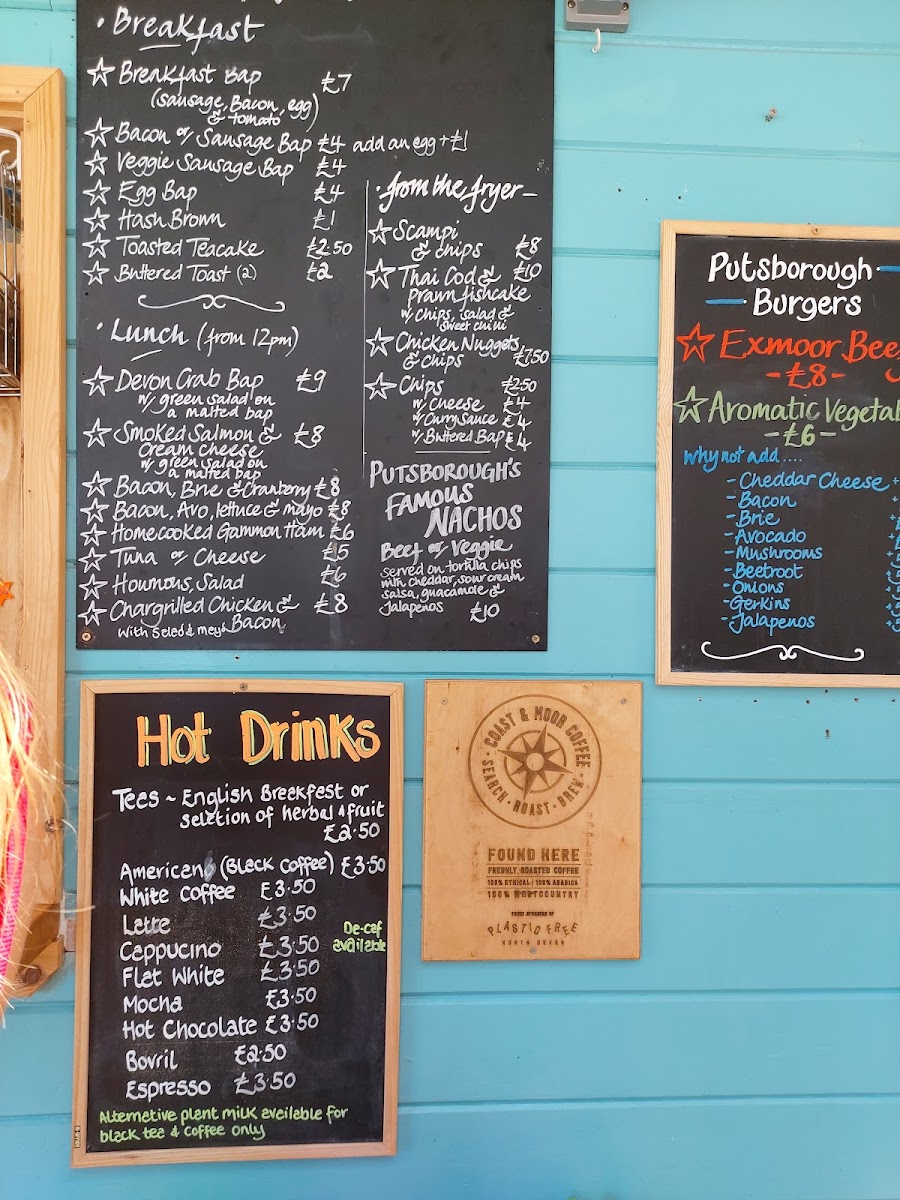 Breakfast
Breakfast Bap £7
(sausage, Bacon, egg
& tomato)
Bacon or Sausage Bap £4 add an egg +£1
Veggie Sausage Bap £4
Egg Bap £4
Hash Brown £1
Toasted Teacake £2.50
Buttered Toast (2) £2
Lunch (from 12pm)
Devon Crab Bap £9
w/ green salad on
a malted bap
Smoked Salmon & £8
Cream cheese
w/ green salad on
a malted bap
Bacon, Brie & Cranberry £8
Bacon, Avo, lettuce & mayo £8
Homecooked Gammon Ham £6
Tuna or Cheese £5
Houmous, Salad £6
Chargrilled Chicken & £8
Bacon
with Salad & mayo
from the fryer
Scampi
& chips £8
Thai Cod & £10
Prawn fishcake
w/ chips, salad &
sweet chilli
Chicken Nuggets
& chips £7.50
Chips £2.50
w/ Cheese £4
w/ Curry Sauce £4
w/ Buttered Bap £4
PUTSBOROUGH'S
FAMOUS
NACHOS
Beef or Veggie
served on tortilla chips
with cheddar, sour cream
salsa, guacamole &
Jalapenos £10
Putsborough
Burgers
Exmoor Bee
-£8-
Aromatic Vegetab
-£6-
Why not add ....
- Cheddar Cheese +
- Bacon
- Brie
- Avocado
- Mushrooms
- Beetroot
- Onions
- Gerkins
- Jalapenos
Hot Drinks
Teas ~ English Breakfast or
selection of herbal & fruit
£2.50
Americano (Black coffee) £3.50
White coffee £3.50
Latte £3.50
Cappucino £3.50
De-caf
available
Flat White £3.50
Mocha £3.50
Hot Chocolate £3.50
Bovril £2.50
Espresso £3.50
Alternative plant milk available for
black tea & coffee only
COAST & MOOR COFFEE
SEARCH · ROAST · BREW
FOUND HERE
FRESHLY ROASTED COFFEE
100% ETHICAL / 100% ARABICA
100% WESTCOUNTRY
PROUD SPONSORS OF
PLASTIC FREE
NORTH DEVON